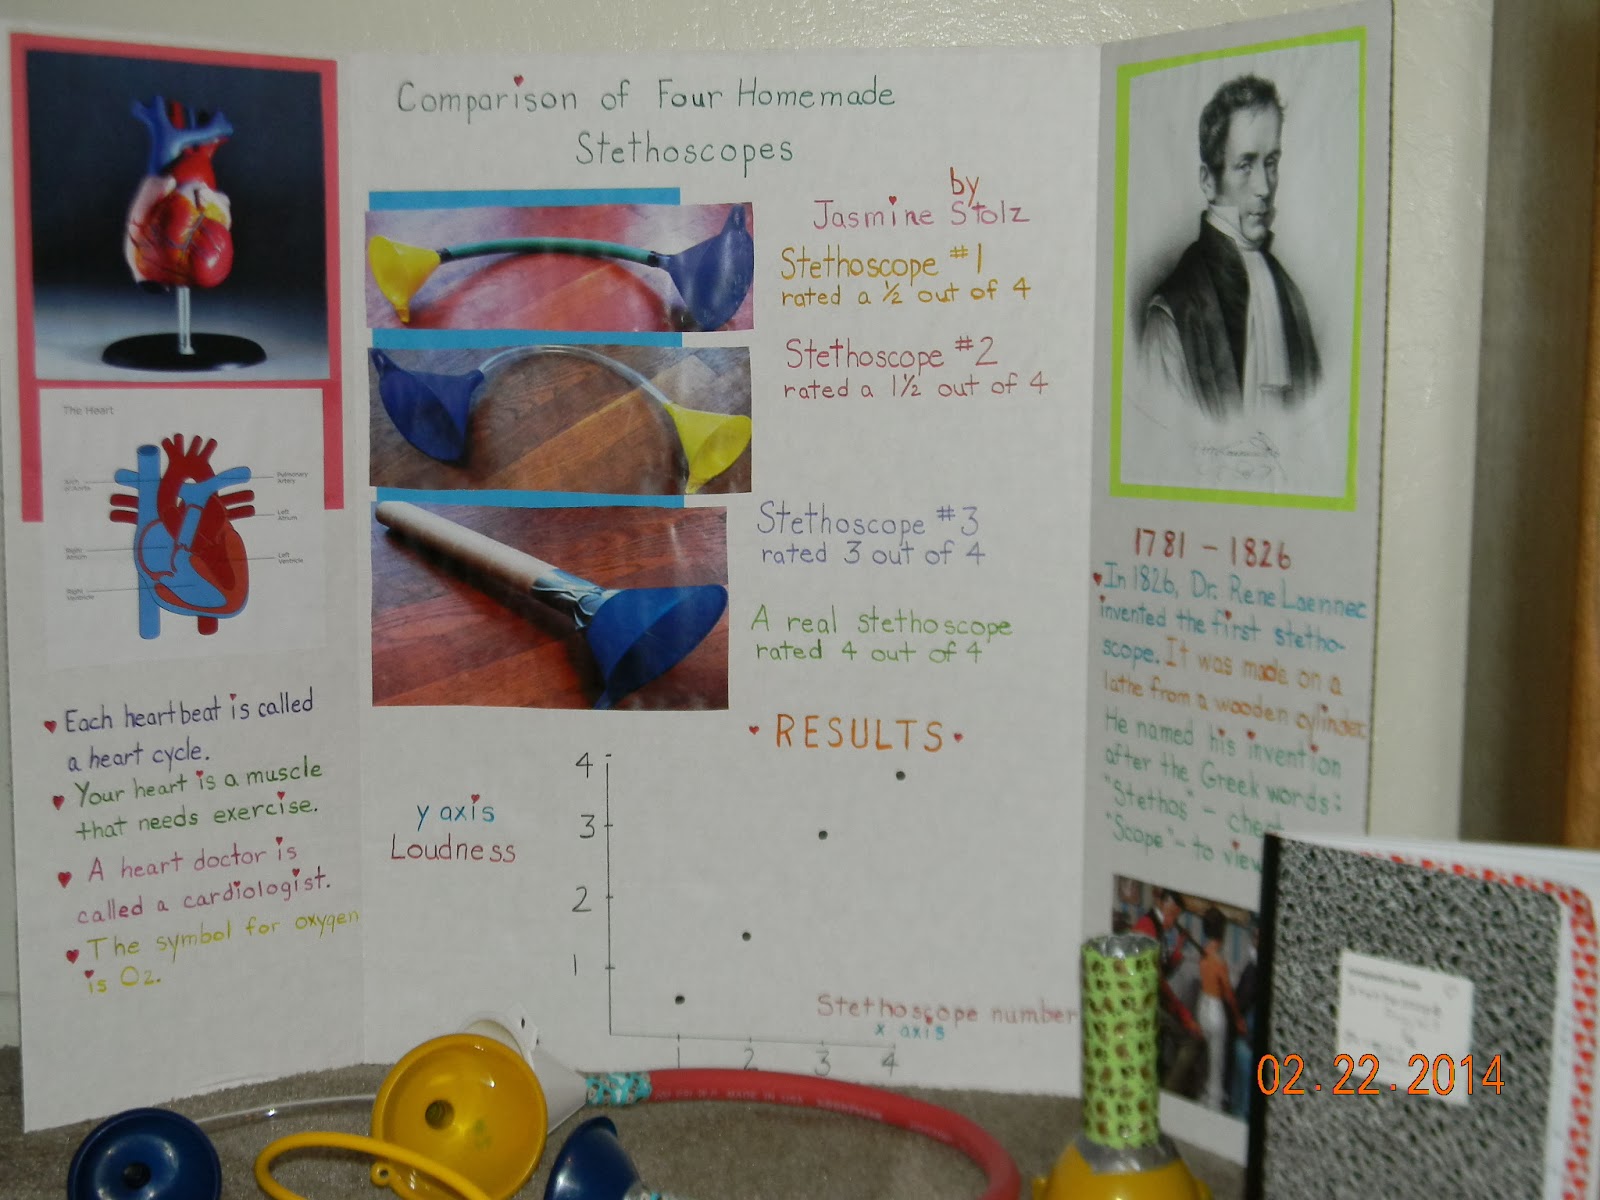 Comparison of Four Homemade
Stethoscopes
by
Jasmine Stolz
Stethoscope #1
rated a ½ out of 4
Stethoscope #2
rated a 1½ out of 4
Stethoscope #3
rated 3 out of 4
A real stethoscope
rated 4 out of 4
RESULTS
y axis
Loudness
4
3
2
1
Stethoscope number
x axis
1 2 3 4
The Heart
Pulmonary
Artery
Left
Atrium
Left
Ventricle
Right
Atrium
Right
Ventricle
Each heartbeat is called
a heart cycle.
Your heart is a muscle
that needs exercise.
A heart doctor is
called a cardiologist.
The symbol for oxygen
is O2.
1781 - 1826
In 1826, Dr. Rene Laennec
invented the first stetho-
scope. It was made on a
lathe from a wooden cylinder.
He named his invention
after the Greek words:
"Stethos" - chest
"Scope" - to view
MADE IN USA
02.22.2014